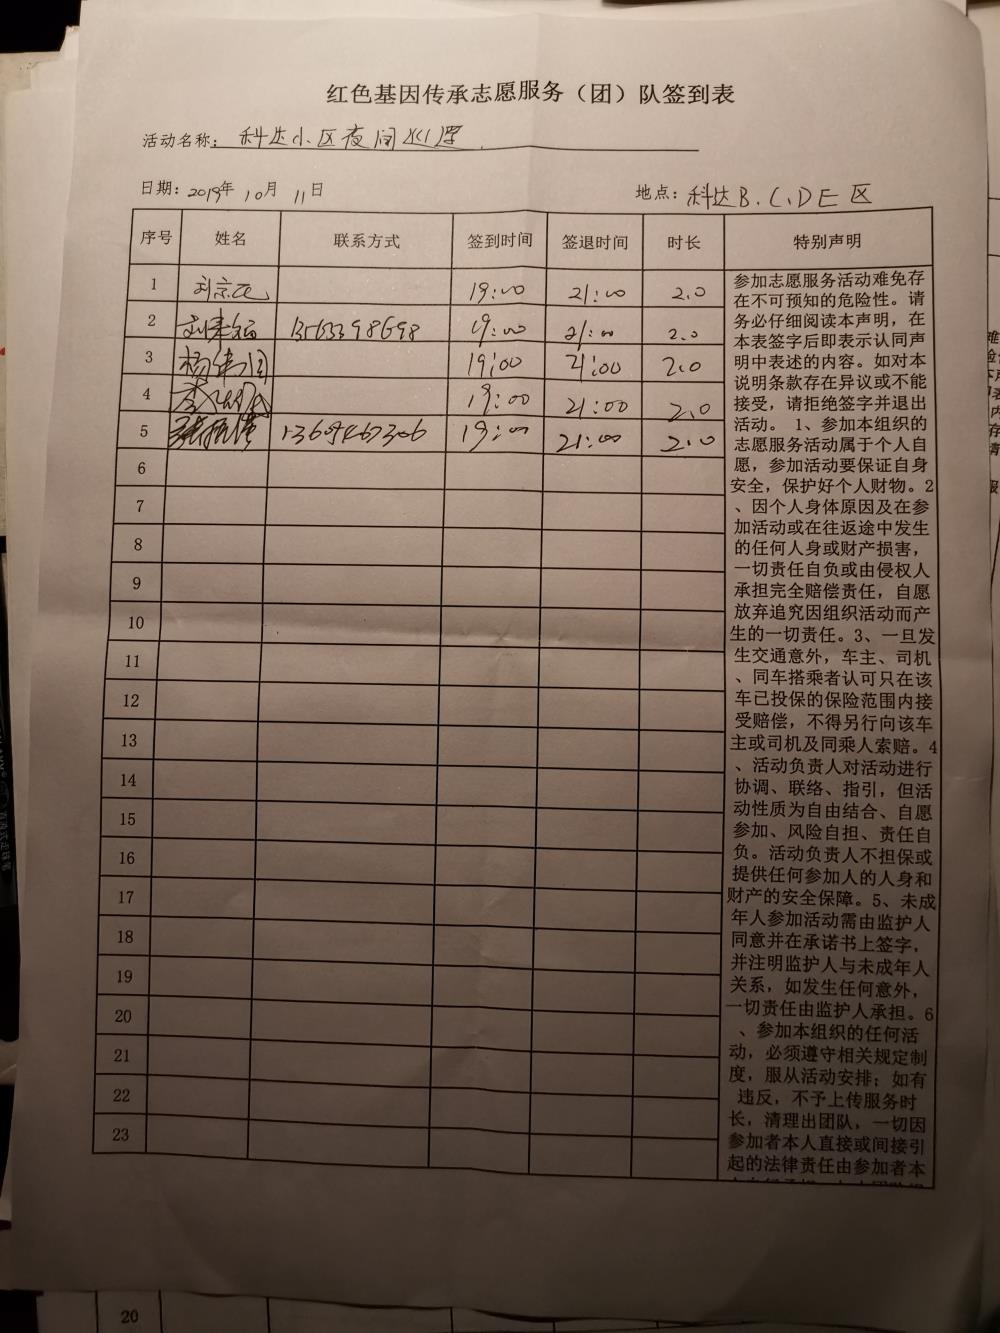 红色基因传承志愿服务（团）队签到表
活动名称：科达小区夜间巡逻
日期：2019年10月11日 地点：科达B.C.DE区
序号 姓名 联系方式 签到时间 签退时间 时长 特别声明
1 19:00 21:00 2.0
2 19:00 21:00 2.0
3 19:00 21:00 2.0
4 19:00 21:00 2.0
5 19:00 21:00 2.0
6
7
8
9
10
11
12
13
14
15
16
17
18
19
20
21
22
23
参加志愿服务活动难免存
在不可预知的危险性。请
务必仔细阅读本声明，在
本表签字后即表示认同声
明中表述的内容。如对本
说明条款存在异议或不能
接受，请拒绝签字并退出
活动。 1、参加本组织的
志愿服务活动属于个人自
愿，参加活动要保证自身
安全，保护好个人财物。2
、因个人身体原因及在参
加活动或在往返途中发生
的任何人身或财产损害，
一切责任自负或由侵权人
承担完全赔偿责任，自愿
放弃追究因组织活动而产
生的一切责任。3、一旦发
生交通意外，车主、司机
、同车搭乘者认可只在该
车已投保的保险范围内接
受赔偿，不得另行向该车
主或司机及同乘人索赔。4
、活动负责人对活动进行
协调、联络、指引，但活
动性质为自由结合、自愿
参加、风险自担、责任自
负。活动负责人不担保或
提供任何参加人的人身和
财产的安全保障。5、未成
年人参加活动需由监护人
同意并在承诺书上签字，
并注明监护人与未成年人
关系，如发生任何意外，
一切责任由监护人承担。6
、参加本组织的任何活
动，必须遵守相关规定制
度，服从活动安排；如有
违反，不予上传服务时
长，清理出团队，一切因
参加者本人直接或间接引
起的法律责任由参加者本
20